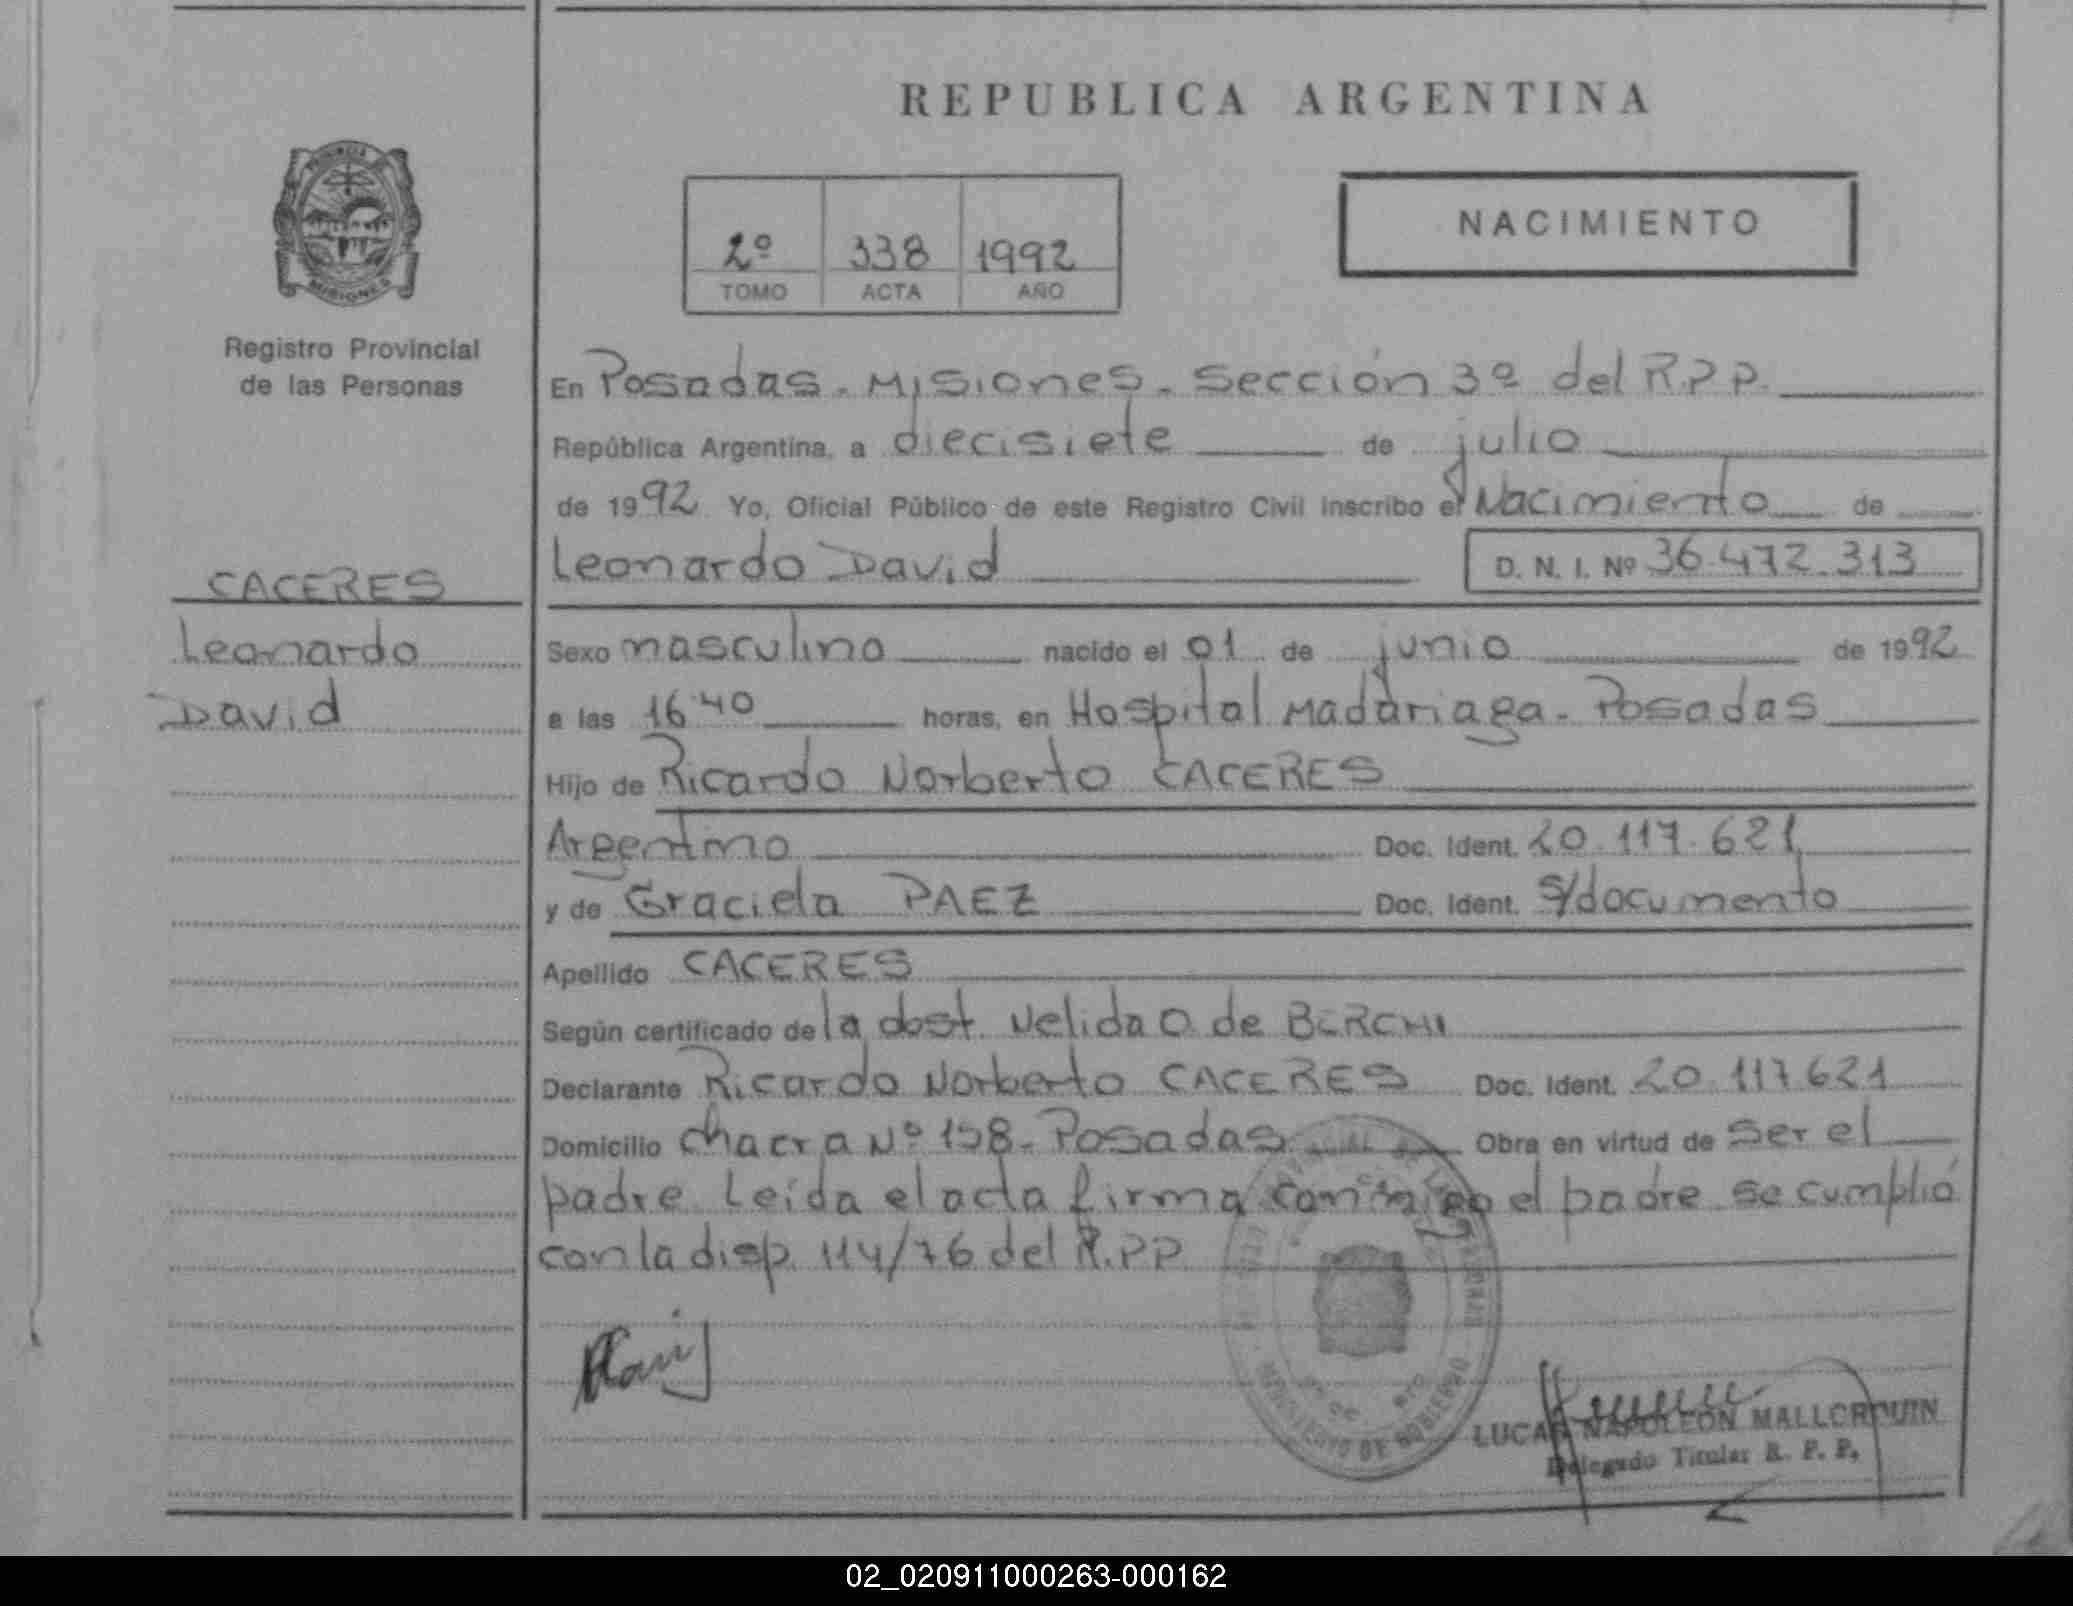 REPUBLICA ARGENTINA
PROVINCIA
MISIONES
Registro Provincial
de las Personas
2º 338 1992
TOMO ACTA AÑO
NACIMIENTO
CACERES
Leonardo
David
En Posadas - Misiones - Sección 3º del R.P.P.
República Argentina, a diecisiete de julio
de 1992 Yo, Oficial Público de este Registro Civil inscribo el Nacimiento de
Leonardo David D. N. I. Nº 36.472.313
Sexo masculino nacido el 01 de junio de 1992
a las 16:40 horas, en Hospital Madariaga - Posadas
Hijo de Ricardo Norberto CACERES
Argentino Doc. Ident. 20.117.621
y de Graciela PAEZ Doc. Ident. S/documento
Apellido CACERES
Según certificado de la obst. Nelida O. de BERCHI
Declarante Ricardo Norberto CACERES Doc. Ident. 20.117.621
Domicilio chacra Nº 158 - Posadas Obra en virtud de ser el
padre. Leída el acta firma conmigo el padre. Se cumplió
con la disp. 114/76 del R.P.P.
LUCAS NAPOLEON MALLORQUIN
Delegado Titular R. P. P.
02_020911000263-000162